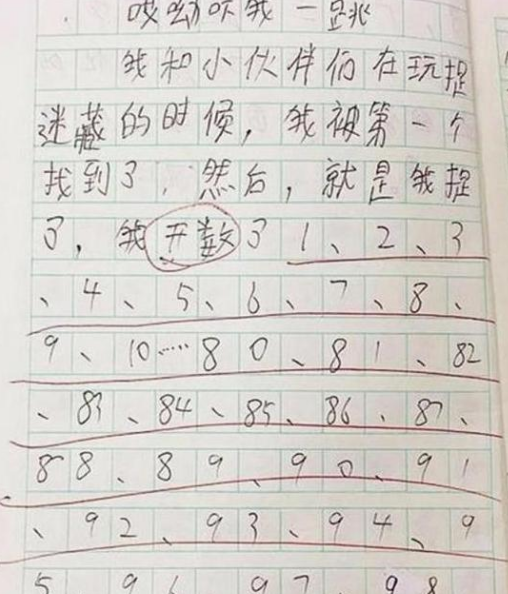 哎呦吓我一跳
我和小伙伴们在玩捉
迷藏的时候，我被第一个
找到了，然后，就是我捉
了，我开数了1、2、3
、4、5、6、7、8、
9、10……80、81、82
、83、84、85、86、87、
88、89、90、91
、92、93、94、9
5 96 97 98